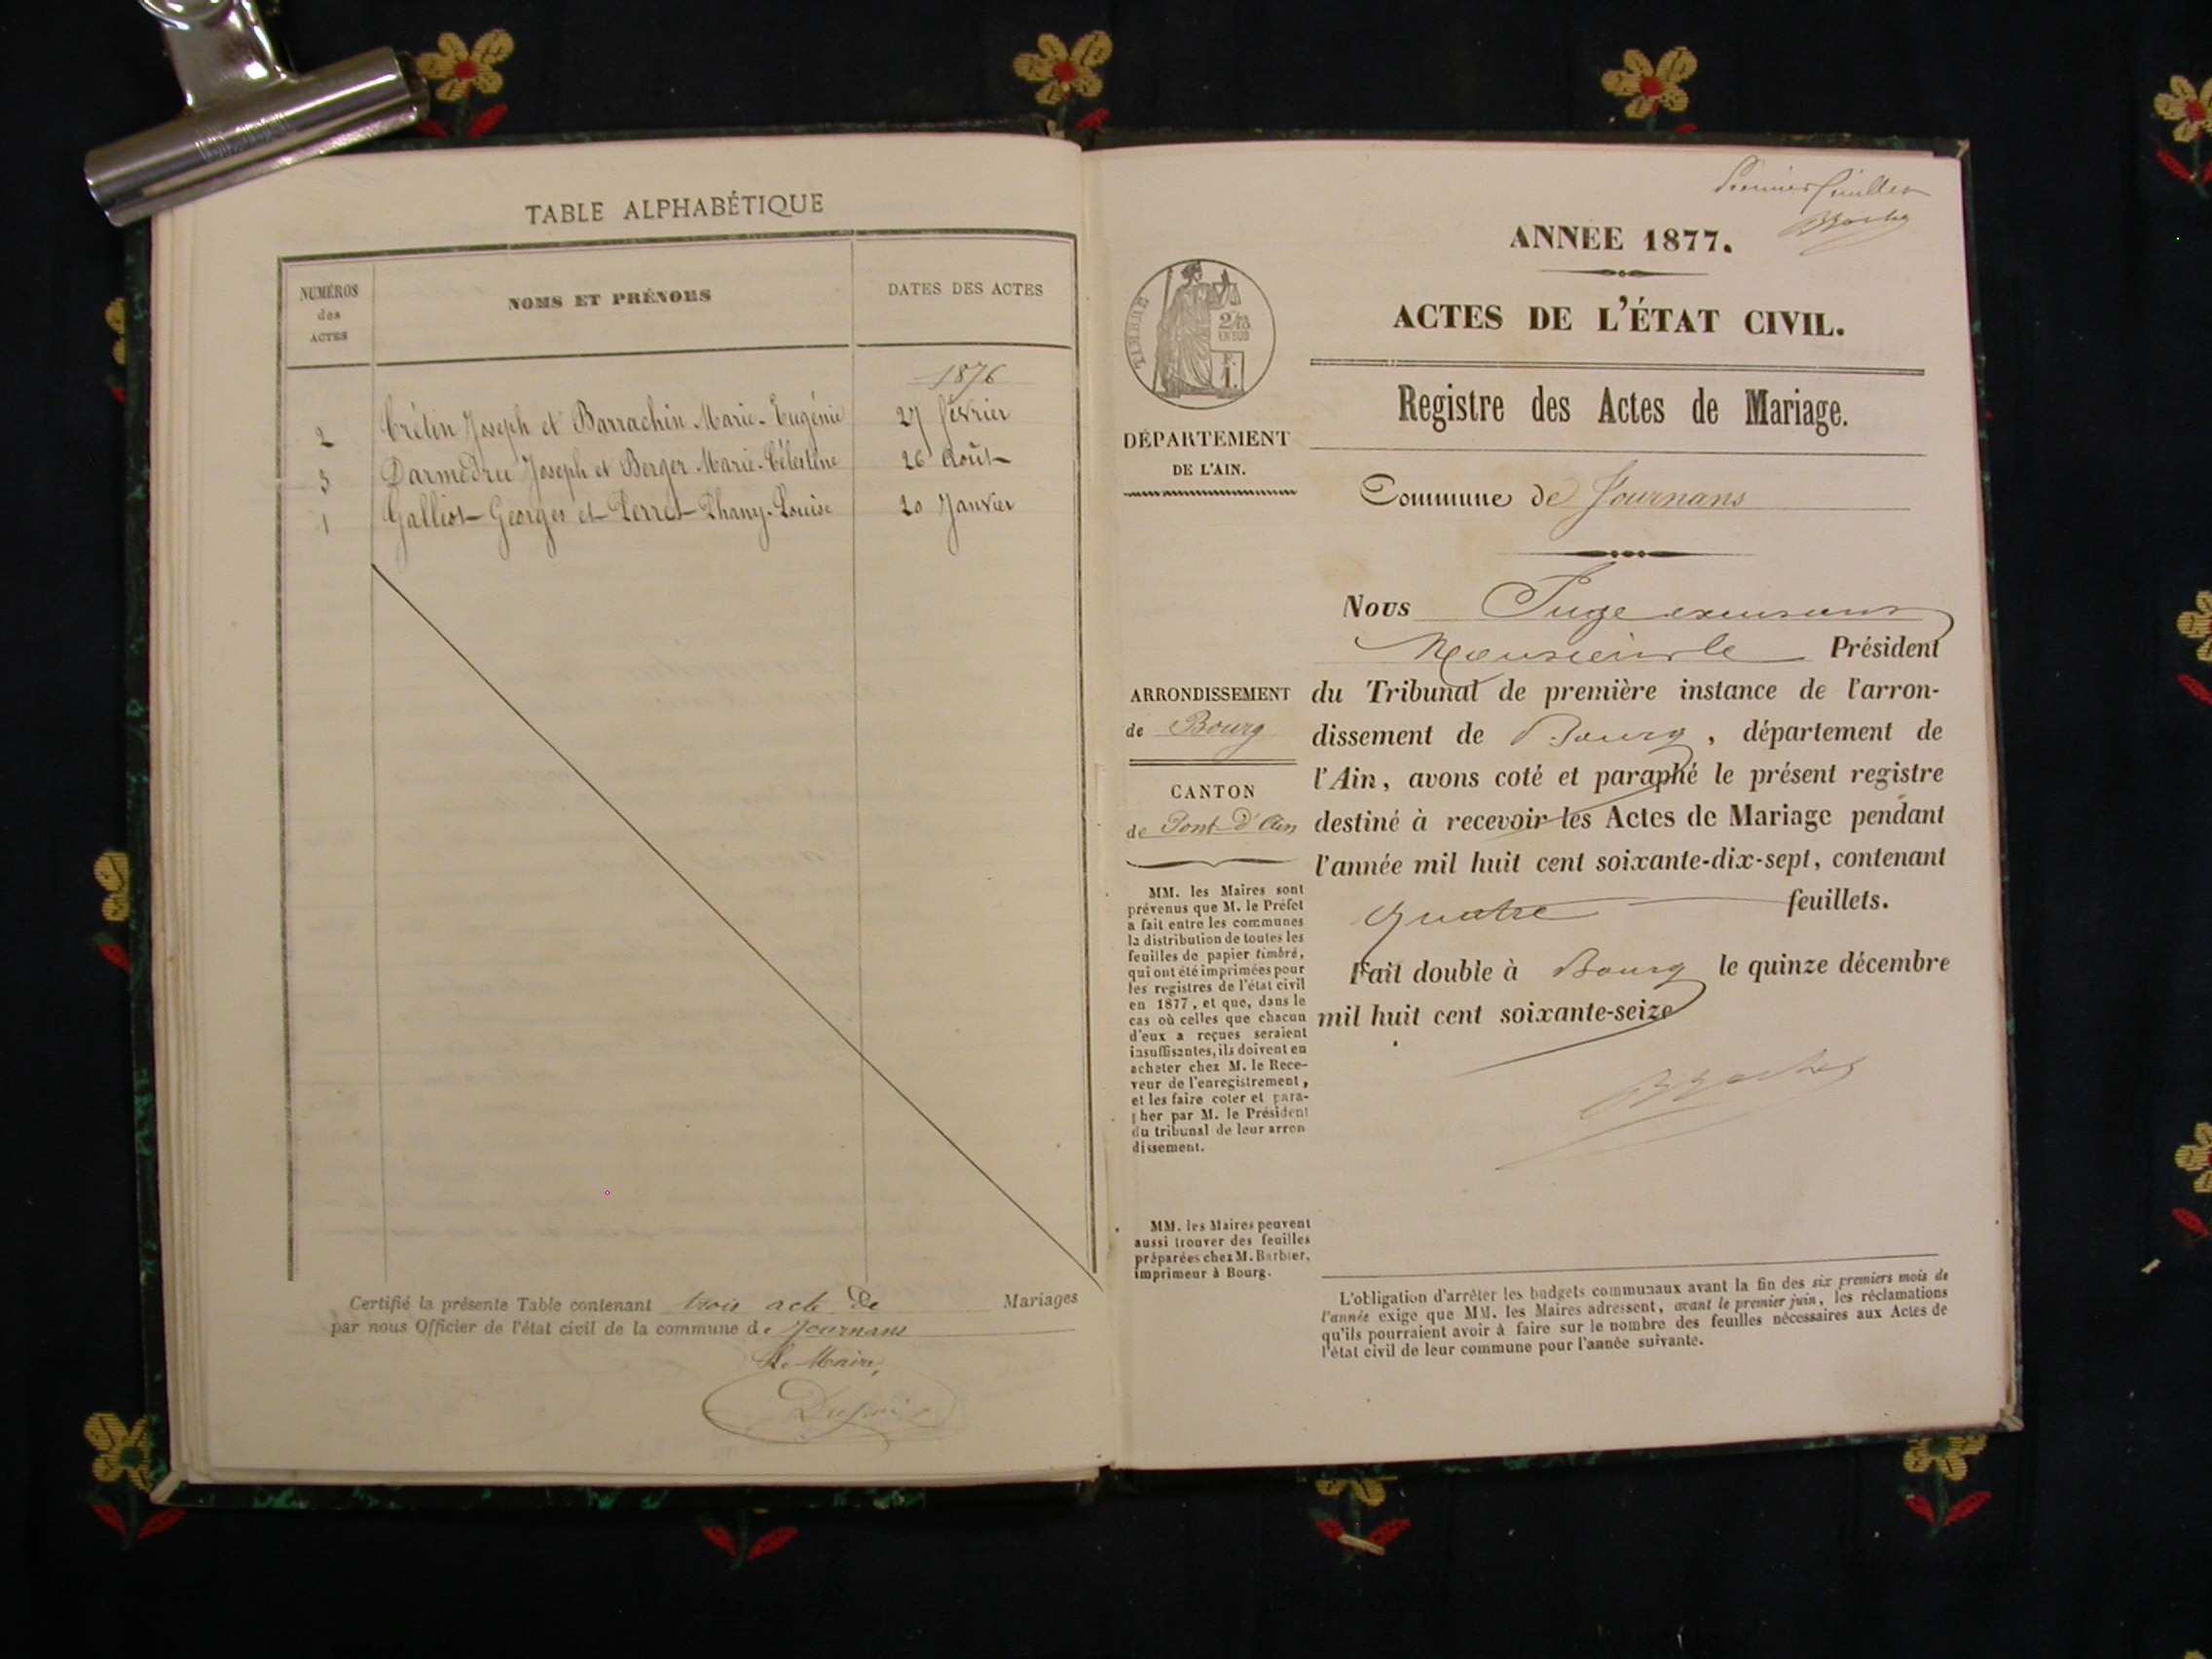 TABLE ALPHABÉTIQUE
NUMÉROS
des
ACTES
NOMS ET PRÉNOMS
DATES DES ACTES
1876
2 Crétin Joseph et Barrachin Marie-Eugénie 27 février
3 Darmedru Joseph et Berger Marie-Célestine 26 Août
1 Galliot Georges et Perret Phany-Louise 20 Janvier
Certifié la présente Table contenant trois acte de Mariages
par nous Officier de l'état civil de la commune de Journans
Le Maire,
Premier feuillet
ANNÉE 1877.
ACTES DE L'ÉTAT CIVIL.
Registre des Actes de Mariage.
TIMBRE
2/10
EN SUS
F.
1.
DÉPARTEMENT
DE L'AIN.
Commune de Journans
ARRONDISSEMENT
de Bourg
CANTON
de Pont d'Ain
MM. les Maires sont
prévenus que M. le Préfet
a fait entre les communes
la distribution de toutes les
feuilles de papier timbré,
qui ont été imprimées pour
les registres de l'état civil
en 1877, et que, dans le
cas où celles que chacun
d'eux a reçues seraient
insuffisantes, ils doivent en
acheter chez M. le Rece-
veur de l'enregistrement,
et les faire coter et para-
pher par M. le Président
du tribunal de leur arron
dissement.
MM. les Maires peuvent
aussi trouver des feuilles
préparées chez M. Barbier,
imprimeur à Bourg.
Nous Juge
Monsieur le Président
du Tribunal de première instance de l'arron-
dissement de Bourg, département de
l'Ain, avons coté et paraphé le présent registre
destiné à recevoir les Actes de Mariage pendant
l'année mil huit cent soixante-dix-sept, contenant
quatre feuillets.
Fait double à Bourg le quinze décembre
mil huit cent soixante-seize
L'obligation d'arrêter les budgets communaux avant la fin des six premiers mois de
l'année exige que MM. les Maires adressent, avant le premier juin, les réclamations
qu'ils pourraient avoir à faire sur le nombre des feuilles nécessaires aux Actes de
l'état civil de leur commune pour l'année suivante.